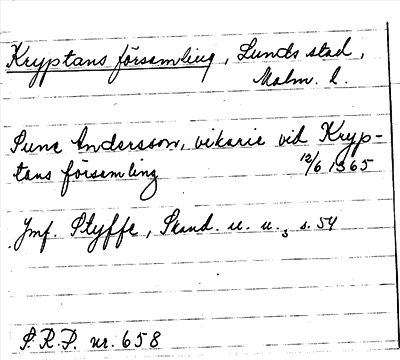 Kryptans församling, Lunds stad,
Malm. l.
Sune Andersson, vikarie vid Kryp-
tans församling 12/6 1365
Jmf. Styffe, Skand. u. u., s. 54
S.R.P. nr. 658